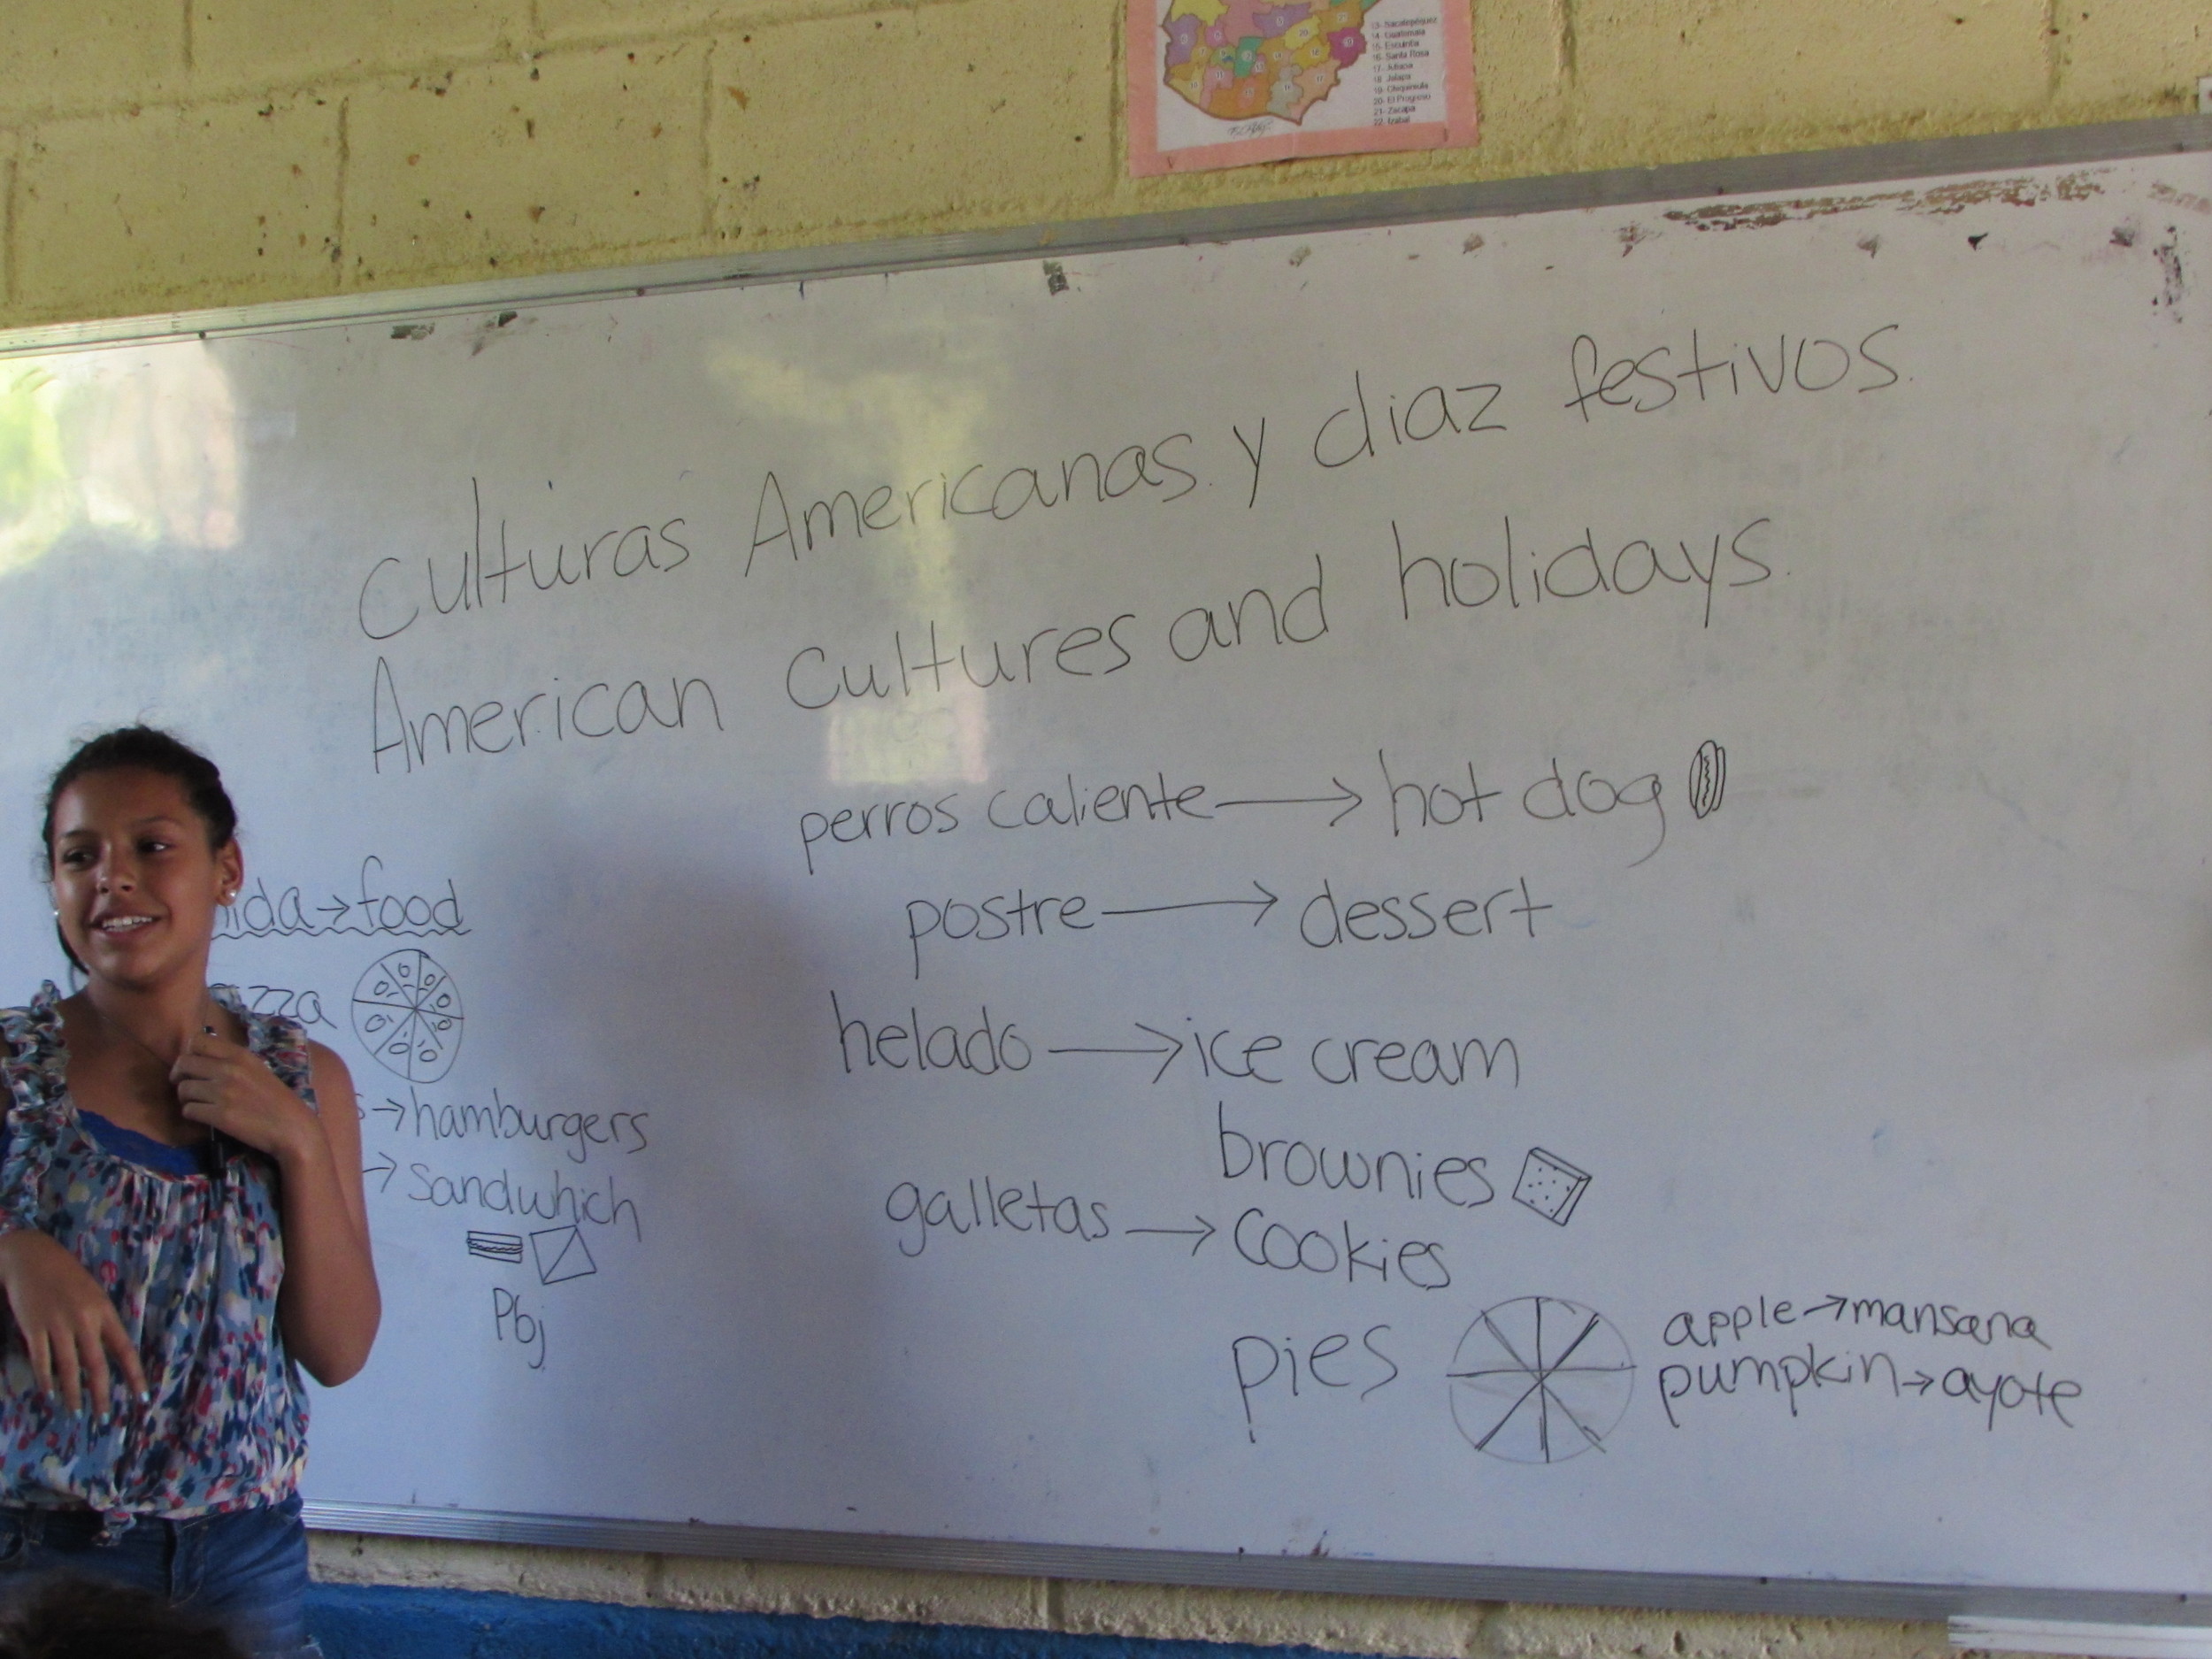 13- Sacatepéquez
14- Guatemala
15- Escuintla
16- Santa Rosa
17- Jutiapa
18- Jalapa
19- Chiquimula
20- El Progreso
21- Zacapa
22- Izabal
Culturas Americanas y diaz festivos.
American cultures and holidays.
perros caliente → hot dog
postre → dessert
helado → ice cream
brownies
galletas → cookies
pies
apple → mansana
pumpkin → ayote
ida → food
izza
s → hamburgers
→ sandwhich
Pbj